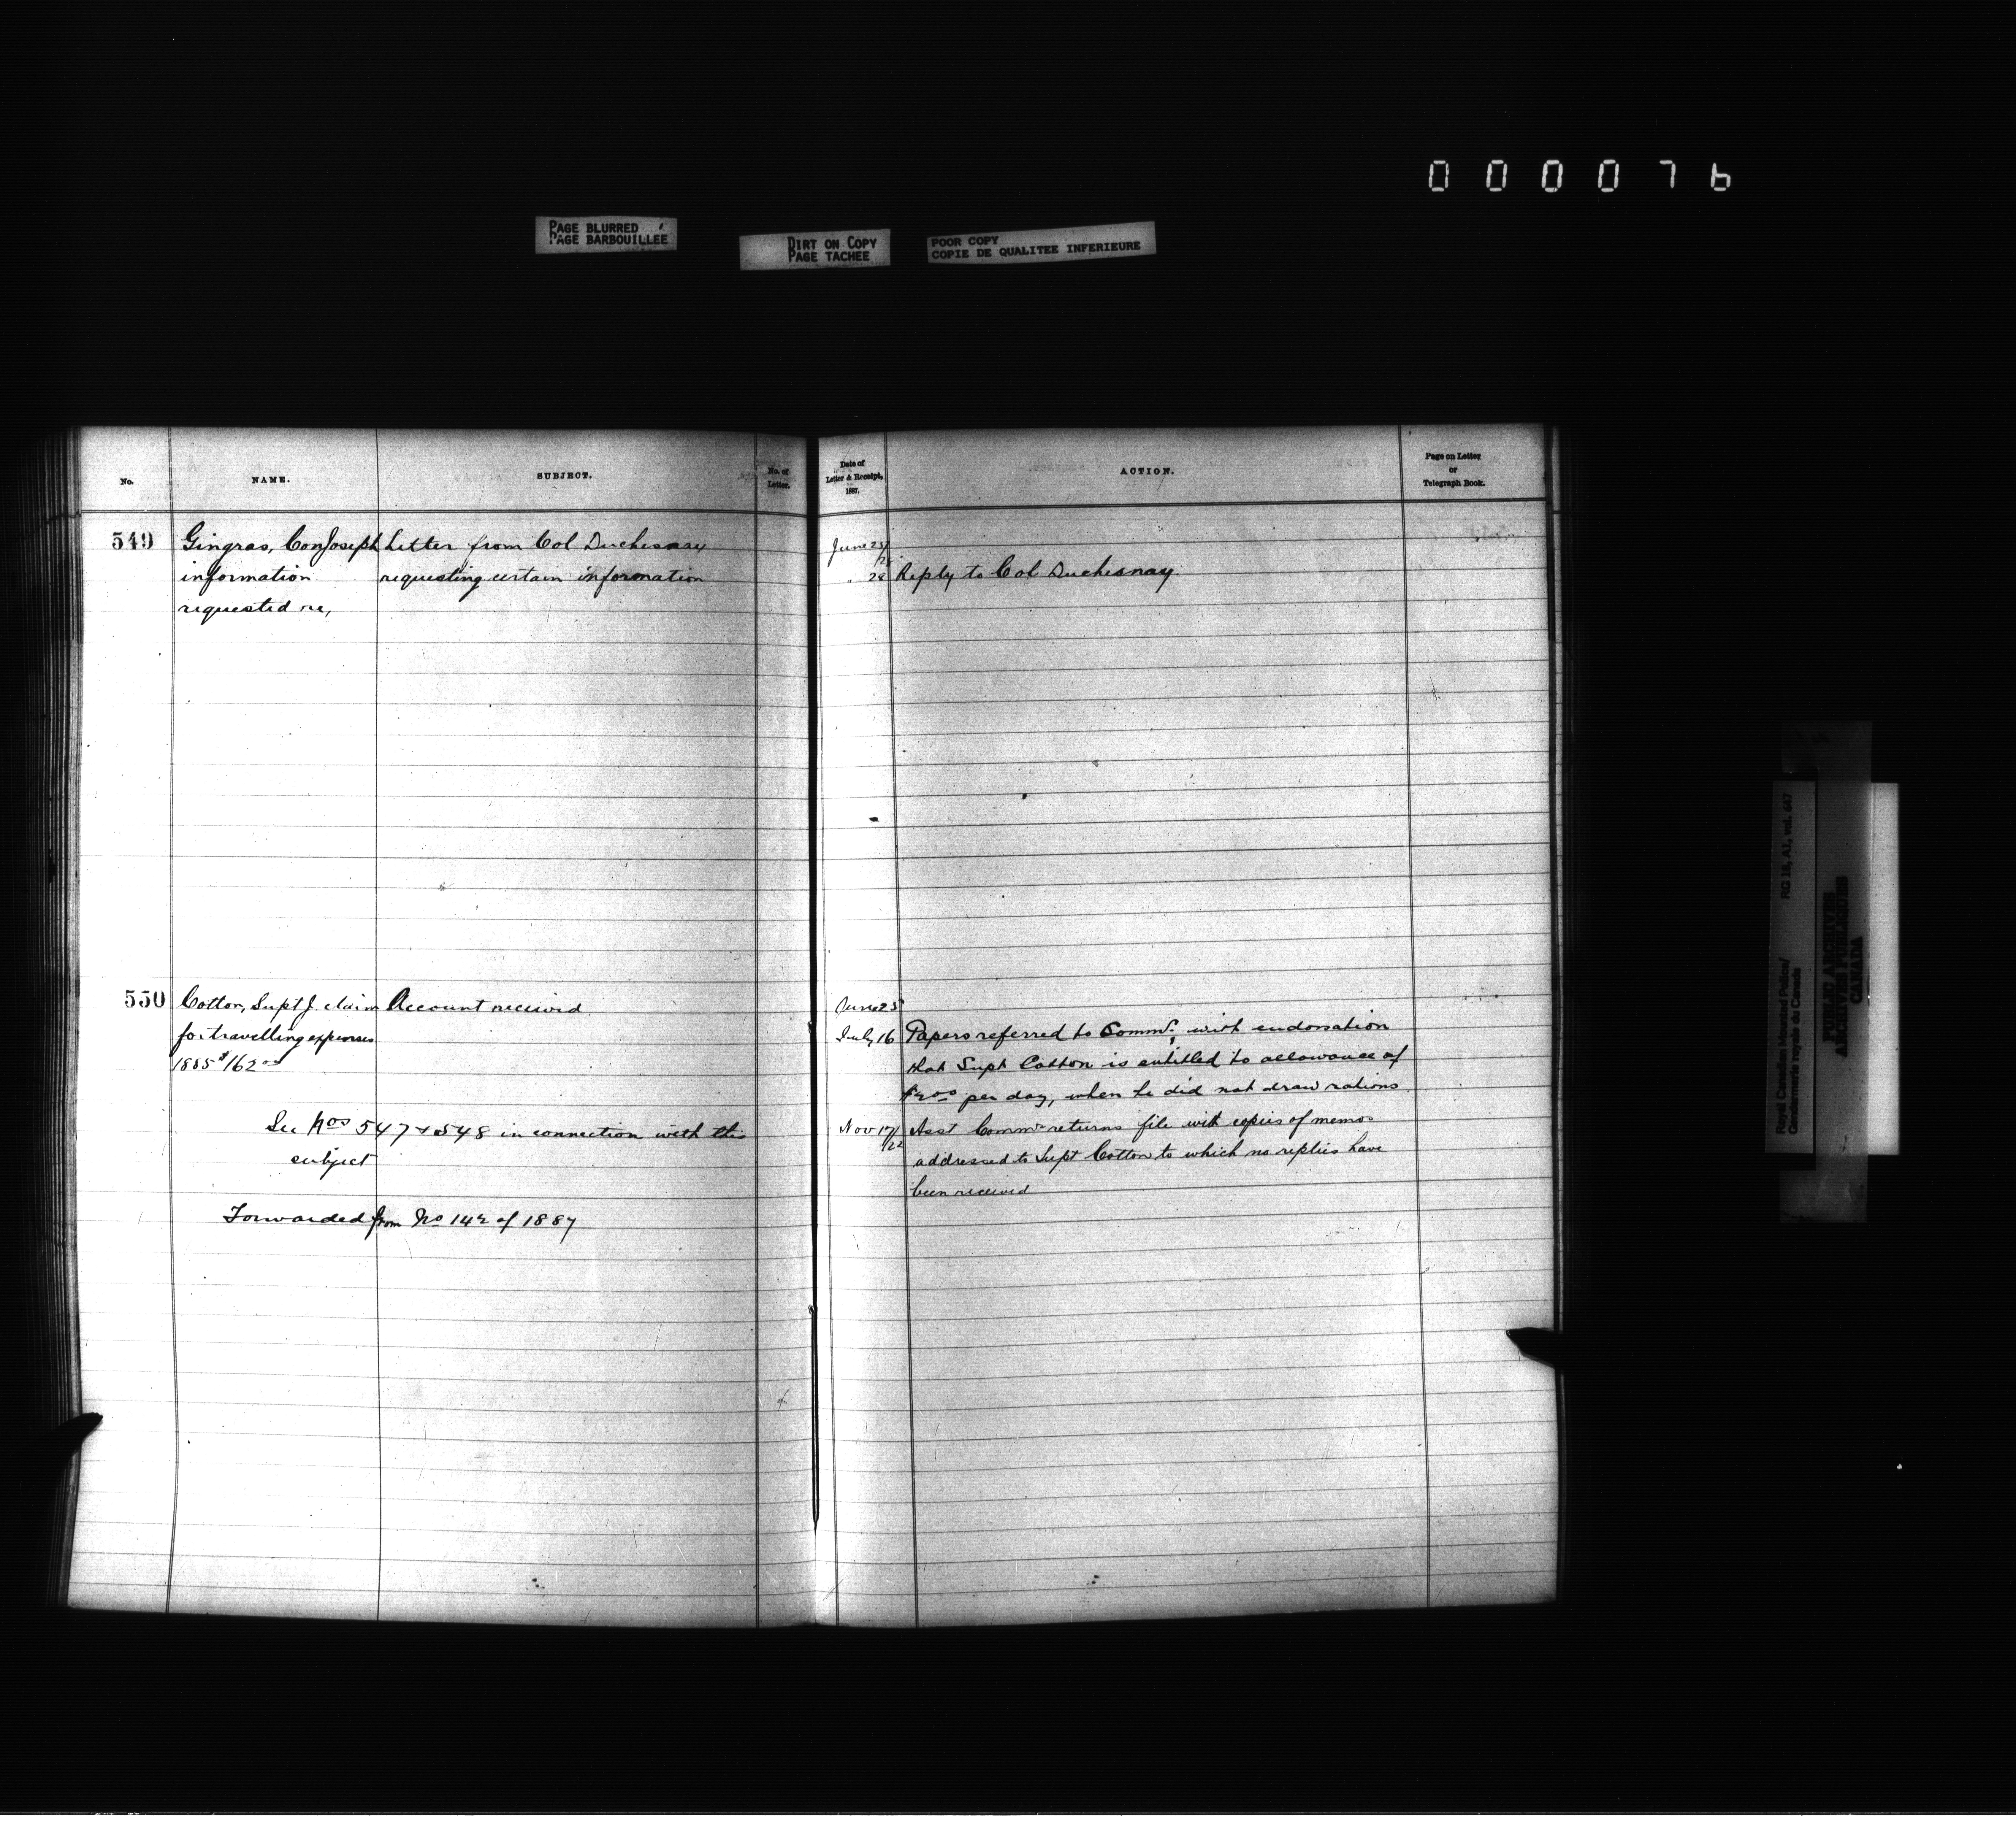 000076
PAGE BLURRED
PAGE BARBOUILLEE
DIRT ON COPY
PAGE TACHEE
POOR COPY
COPIE DE QUALITEE INFERIEURE
No.
NAME.
SUBJECT.
No. of
Letter.
549
Gingras, Con Joseph
information
requested re,
Letter from Col Duchesnay
requesting certain information
550
Cotton, Supt J. claim
for travelling expenses
1885 $162.00
Account received
See Nos 547 & 548 in connection with this
subject
Forwarded from No 142 of 1887
Date of
Letter & Receipt,
1887.
ACTION.
Page on Letter
or
Telegraph Book.
June 25/
28 Reply to Col Duchesnay.
June 25
July 16 Papers referred to Commr. with endorsation
that Supt Cotton is entitled to allowance of
$2.00 per day, when he did not draw rations
Nov 17/22 Asst Commr returns file with copies of memos
addressed to Supt Cotton to which no replies have
been received
Royal Canadian Mounted Police/
Gendarmerie royale du Canada
RG 18, A1, vol. 647
PUBLIC ARCHIVES
ARCHIVES PUBLIQUES
CANADA